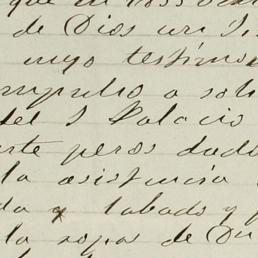 que en
de Dios un
cuyo testimo
impulso a sol
del S Palacio
rte peros dud
la asistencia
da y labado y
la ropa de Du